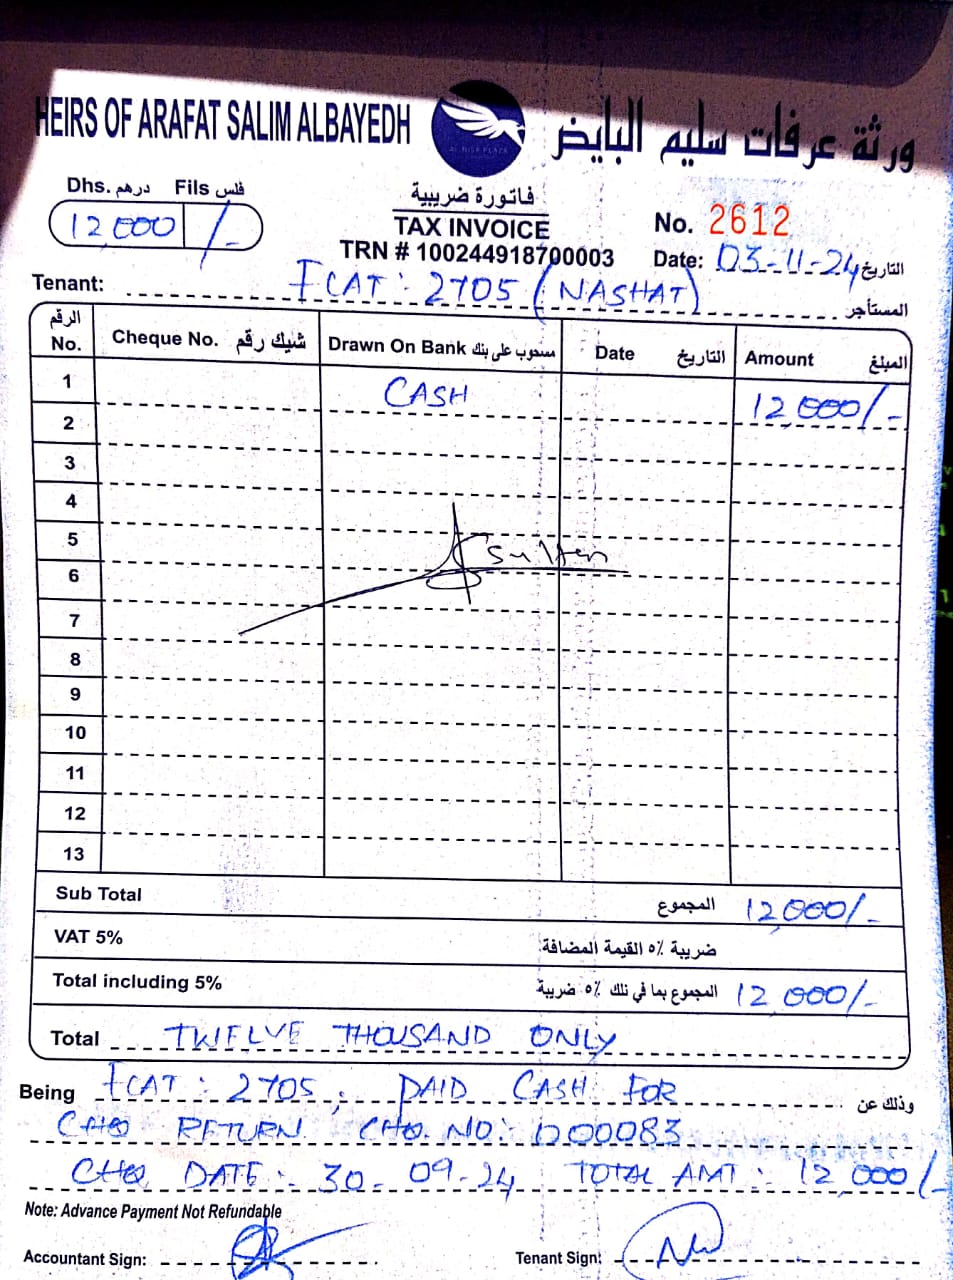 HEIRS OF ARAFAT SALIM ALBAYEDH
ورثة عرفات سليم البايض
AL NISR PLAZA
Dhs. درهم Fils فلس
12,000 /-
فاتورة ضريبية
TAX INVOICE
TRN # 100244918700003
No. 2612
Date: 03-11-24 التاريخ
Tenant: FCAT: 2705 (NASHAT) المستأجر
الرقم No. Cheque No. شيك رقم Drawn On Bank مسحوب على بنك Date التاريخ Amount المبلغ
1 CASH 12,000/-
2
3
4
5 Sultan
6
7
8
9
10
11
12
13
Sub Total المجموع 12,000/-
VAT 5% ضريبة ٥٪ القيمة المضافة
Total including 5% المجموع بما في ذلك ٥٪ ضريبة 12,000/-
Total TWELVE THOUSAND ONLY
Being FCAT: 2705, PAID CASH FOR وذلك عن
CHQ RETURN CHQ. NO: 000083
CHQ DATE:- 30-09-24 TOTAL AMT: 12,000/-
Note: Advance Payment Not Refundable
Accountant Sign: Tenant Sign: